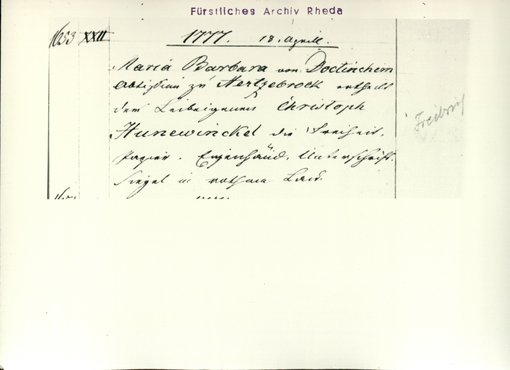 Fürstliches Archiv Rheda
1653 XXII 1777. 18. April.
Maria Barbara von Doctinchem
Abtissin zu Hertzebrock ertheilt
dem Leibeigenen Christoph
Hunewinckel die Freiheit.
Papier. Eigenhänd. Unterschrift.
Siegel in rothem Lack.
Freibrief